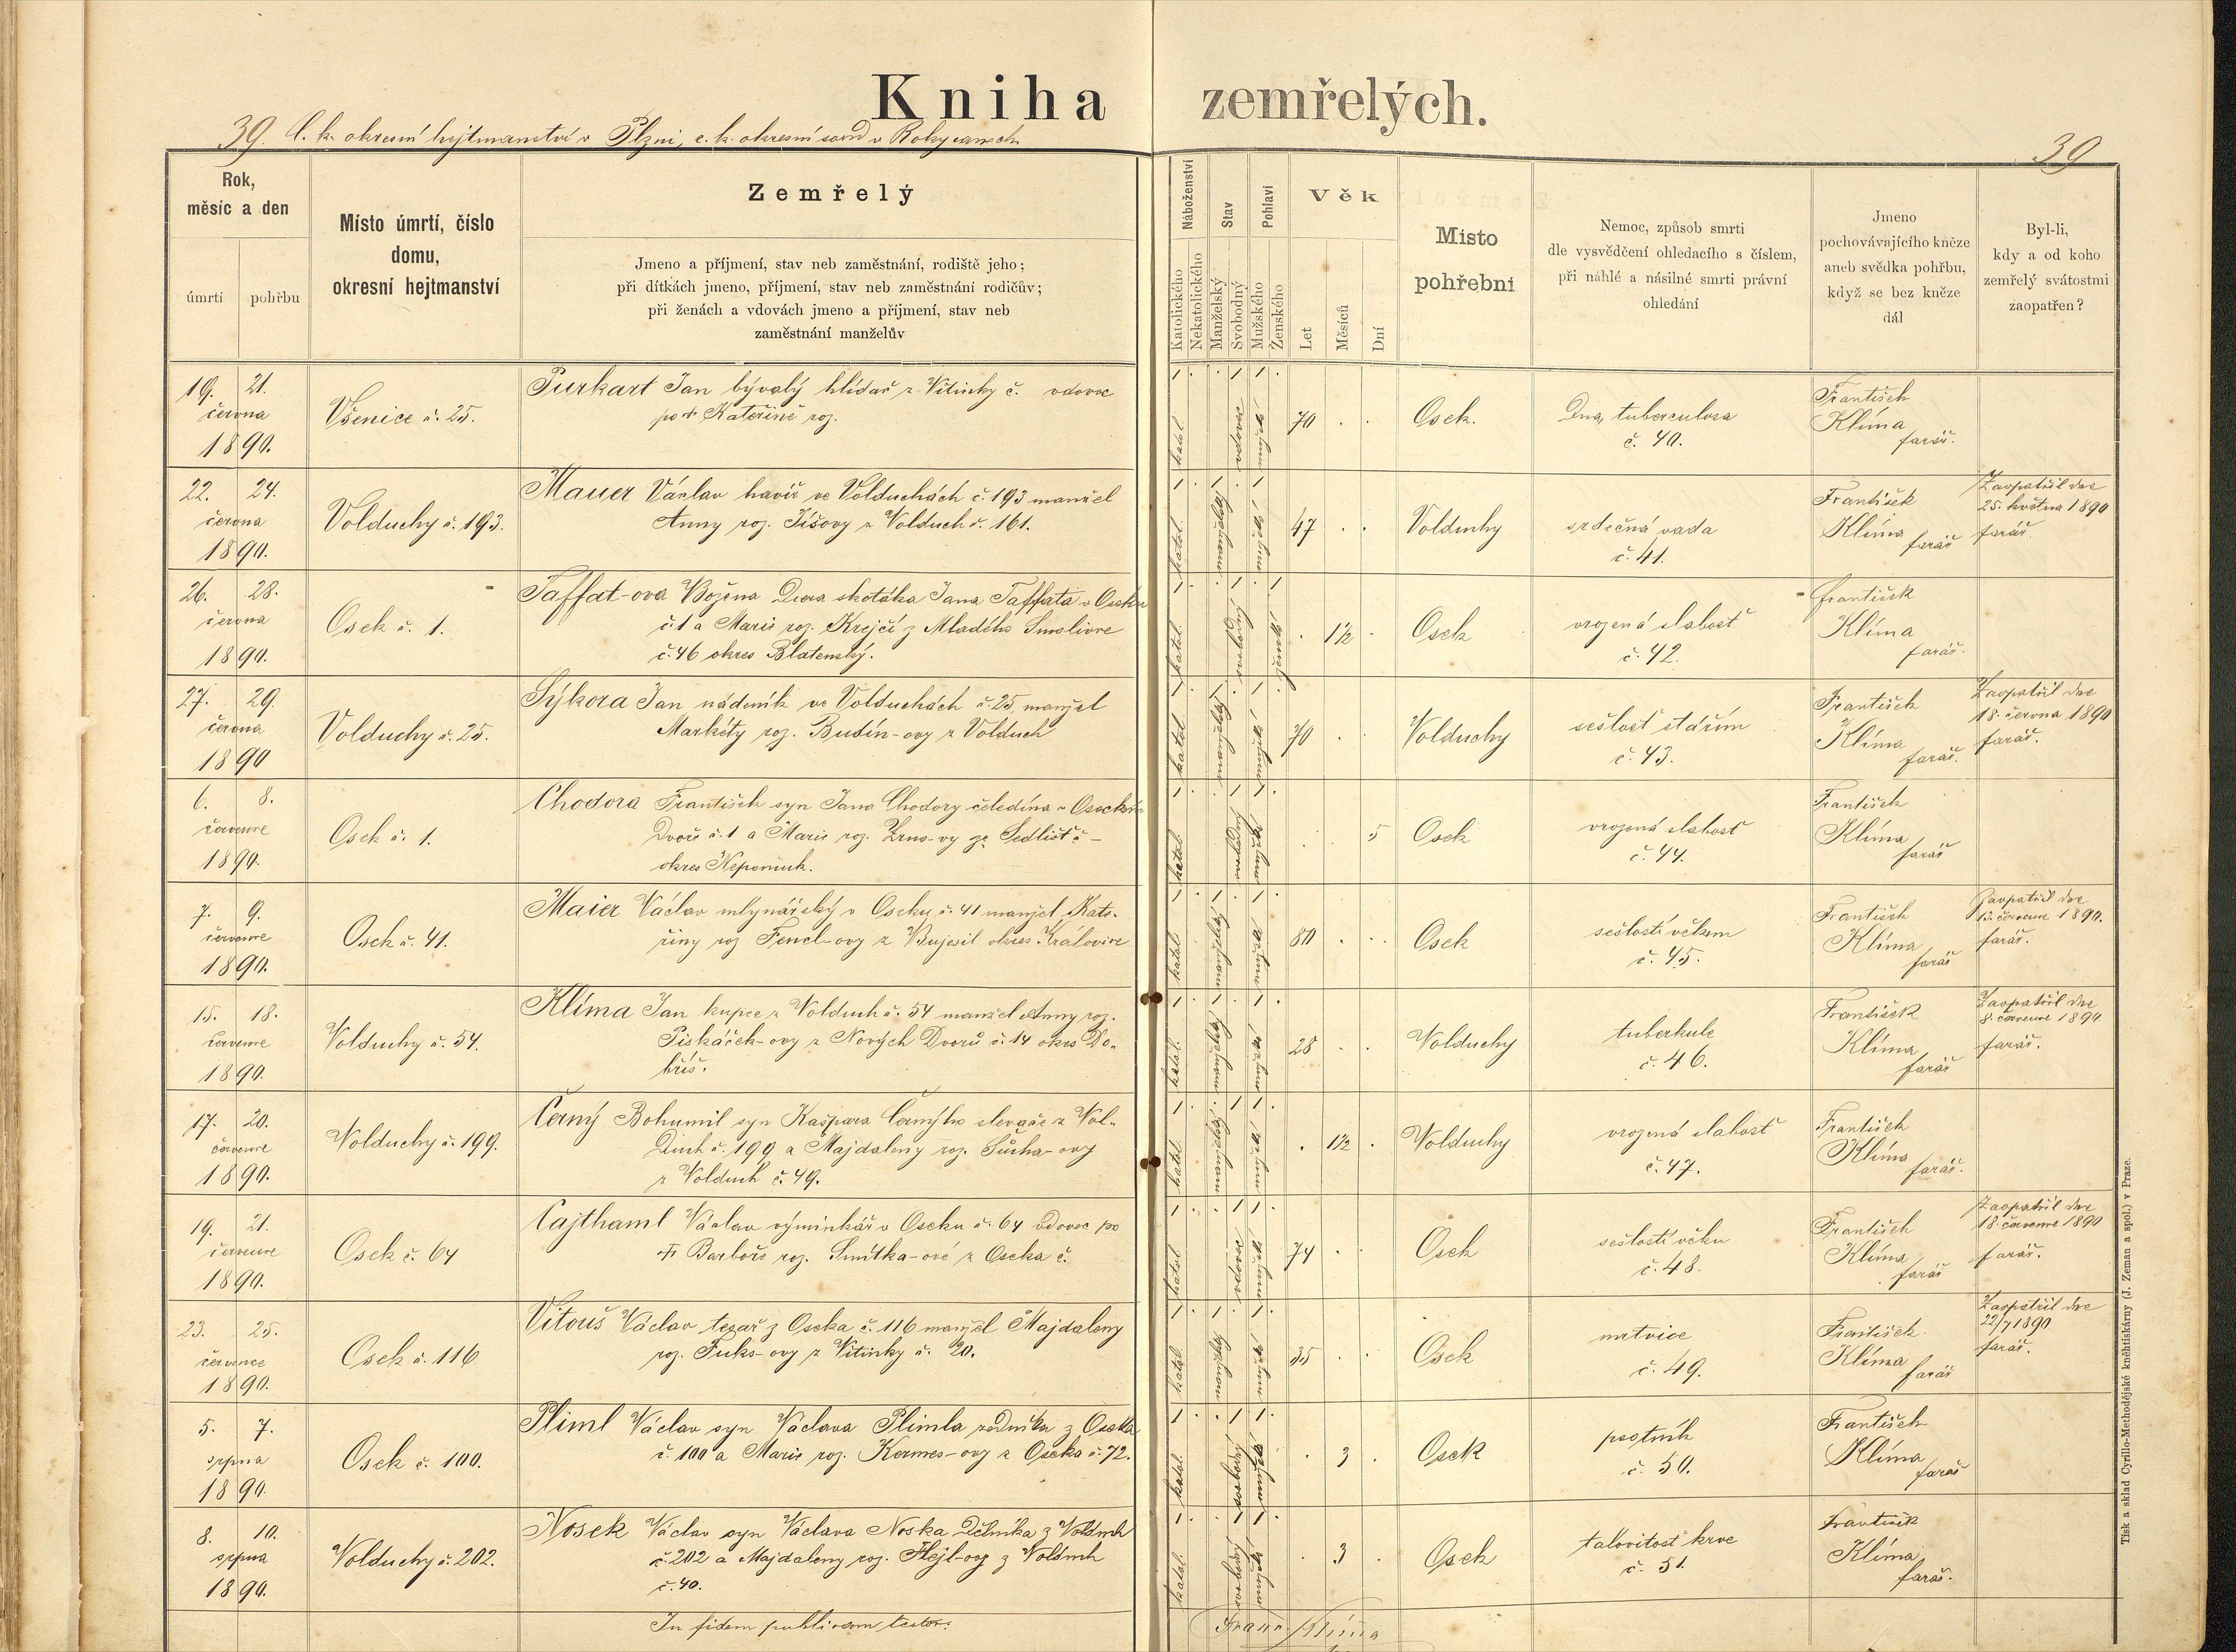 Kniha zemřelých.
39. C. k. okresní hejtmanství v Plzni, c. k. okresní soud v Rokycanech
39
Rok,
měsíc a den
úmrtí
pohřbu
Místo úmrtí, číslo
domu,
okresní hejtmanství
Zemřelý
Jmeno a příjmení, stav neb zaměstnání, rodiště jeho;
při dítkách jmeno, příjmení, stav neb zaměstnání rodičův;
při ženách a vdovách jmeno a příjmení, stav neb
zaměstnání manželův
Náboženství
Katolického
Nekatolického
Stav
Manželský
Svobodný
Pohlaví
Mužského
Ženského
Věk
Let
Měsíců
Dní
Místo
pohřební
Nemoc, způsob smrti
dle vysvědčení ohledacího s číslem,
při náhlé a násilné smrti právní
ohledání
Jmeno
pochovávajícího kněze
aneb svědka pohřbu,
když se bez kněze
dál
Byl-li,
kdy a od koho
zemřelý svátostmi
zaopatřen?
19. 21.
června
1890.
Všenice č. 25.
Purkart Jan bývalý hlídač z Vitinky č. vdovec
po † Kateřině roz.
katol.
vdovec
mužské
70
Osek.
Dna, tuberculosa
č. 40.
František
Klíma
farář.
22. 24.
června
1890.
Volduchy č. 193.
Mauer Václav havíř ve Volduchách č. 193 manžel
Anny roz. Tíšovy z Volduch č. 161.
katol.
manželský
mužské
47
Volduchy
srdečná vada
č. 41.
František
Klíma
farář
Zaopatřil dne
25. května 1890
farář.
26. 28.
června
1890.
Osek č. 1.
Taffat-ova Božena Dcera skotáka Jana Taffata v Oseku
č. 1 a Marie roz. Krejčí z Mladého Smolivce
č. 46 okres Blatenský.
katol.
svobodný
ženské
1½
Osek
vrozená slabost
č. 42.
František
Klíma
farář.
27. 29.
června
1890
Volduchy č. 25.
Sýkora Jan nádeník ve Volduchách č. 25, manžel
Markéty roz. Budín-ovy z Volduch
katol.
manželský
mužské
70
Volduchy
sešlost stářím
č. 43.
František
Klíma
farář.
Zaopatřil dne
18. června 1890
farář.
6. 8.
července
1890.
Osek č. 1.
Chodora František syn Jana Chodory čeledína v Oseckém
Dvoře č. 1 a Marie roz. Zrns-vy ze Sedliště –
okres Nepomuk.
katol.
svobodný
mužské
5
Osek
vrozená slabost
č. 44.
František
Klíma
farář
7. 9.
července
1890.
Osek č. 41.
Maier Václav mlynářský v Oseku č. 41 manžel Kate-
řiny roz Fencl-ovy z Bujesil okres Kralovice
katol.
manželský
mužské
80
Osek
sešlostí věkem
č. 45.
František
Klíma
farář
Zaopatřil dne
července 1890.
farář.
15. 18.
července
1890.
Volduchy č. 54.
Klíma Jan kupec z Volduch č. 54 manžel Anny roz.
Piskáček-ovy z Nových Dvorů č. 14 okres Do-
bříš.
katol.
manželský
mužské
28
Volduchy
tuberkule
č. 46.
František
Klíma
farář
Zaopatřil dne
8. července 1890
farář.
17. 20.
července
1890.
Volduchy č. 199.
Černý Bohumil syn Kašpara Černýho slevače z Vol-
Duch č. 199 a Majdaleny roz. Sucha-ovy
z Volduch č. 49.
katol.
mužské
1½
Volduchy
vrozená slabost
č. 47.
František
Klíma
farář.
19. 21.
července
1890.
Osek č. 64
Cajthaml Václav výminkář v Oseku č. 64 vdovec po
† Barboře roz. Smitka-ové z Oseka č.
katol
vdovec
mužské
74
Osek
sešlostí věku
č. 48.
František
Klíma
farář
Zaopatřil dne
18. července 1890
farář.
23. 25.
července
1890.
Osek č. 116
Vitouš Václav tesař z Oseka č. 116 manžel Majdaleny
roz. Fuks-ovy z Vitinky č. 20.
katol.
manželský
mužské
35
Osek
mrtvice
č. 49.
František
Klíma
farář
Zaopatřil dne
22/7 1890
farář.
5. 7.
srpna
1890.
Osek č. 100.
Pliml Václav syn Václava Plimla zedníka z Oseka
č. 100 a Marie roz. Kermes-ovy z Oseka č. 72.
katol.
svobodný
mužské
3
Osek
psotník
č. 50.
František
Klíma
farář
8. 10.
srpna
1890.
Volduchy č. 202.
Nosek Václav syn Václava Noska Dělníka z Volduch
č. 202 a Majdaleny roz. Hejl-ovy z Volduch
č. 40.
katol.
svobodný
mužské
3
Osek
talovitost krve
č. 51.
František
Klíma
farář.
In fidem publicam testor:
Franc. Klíma
Tisk a sklad Cyrillo-Methodějské knihtiskárny (J. Zeman a spol.) v Praze.